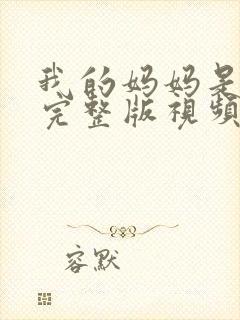 我的妈妈是
完整版視頻
容默